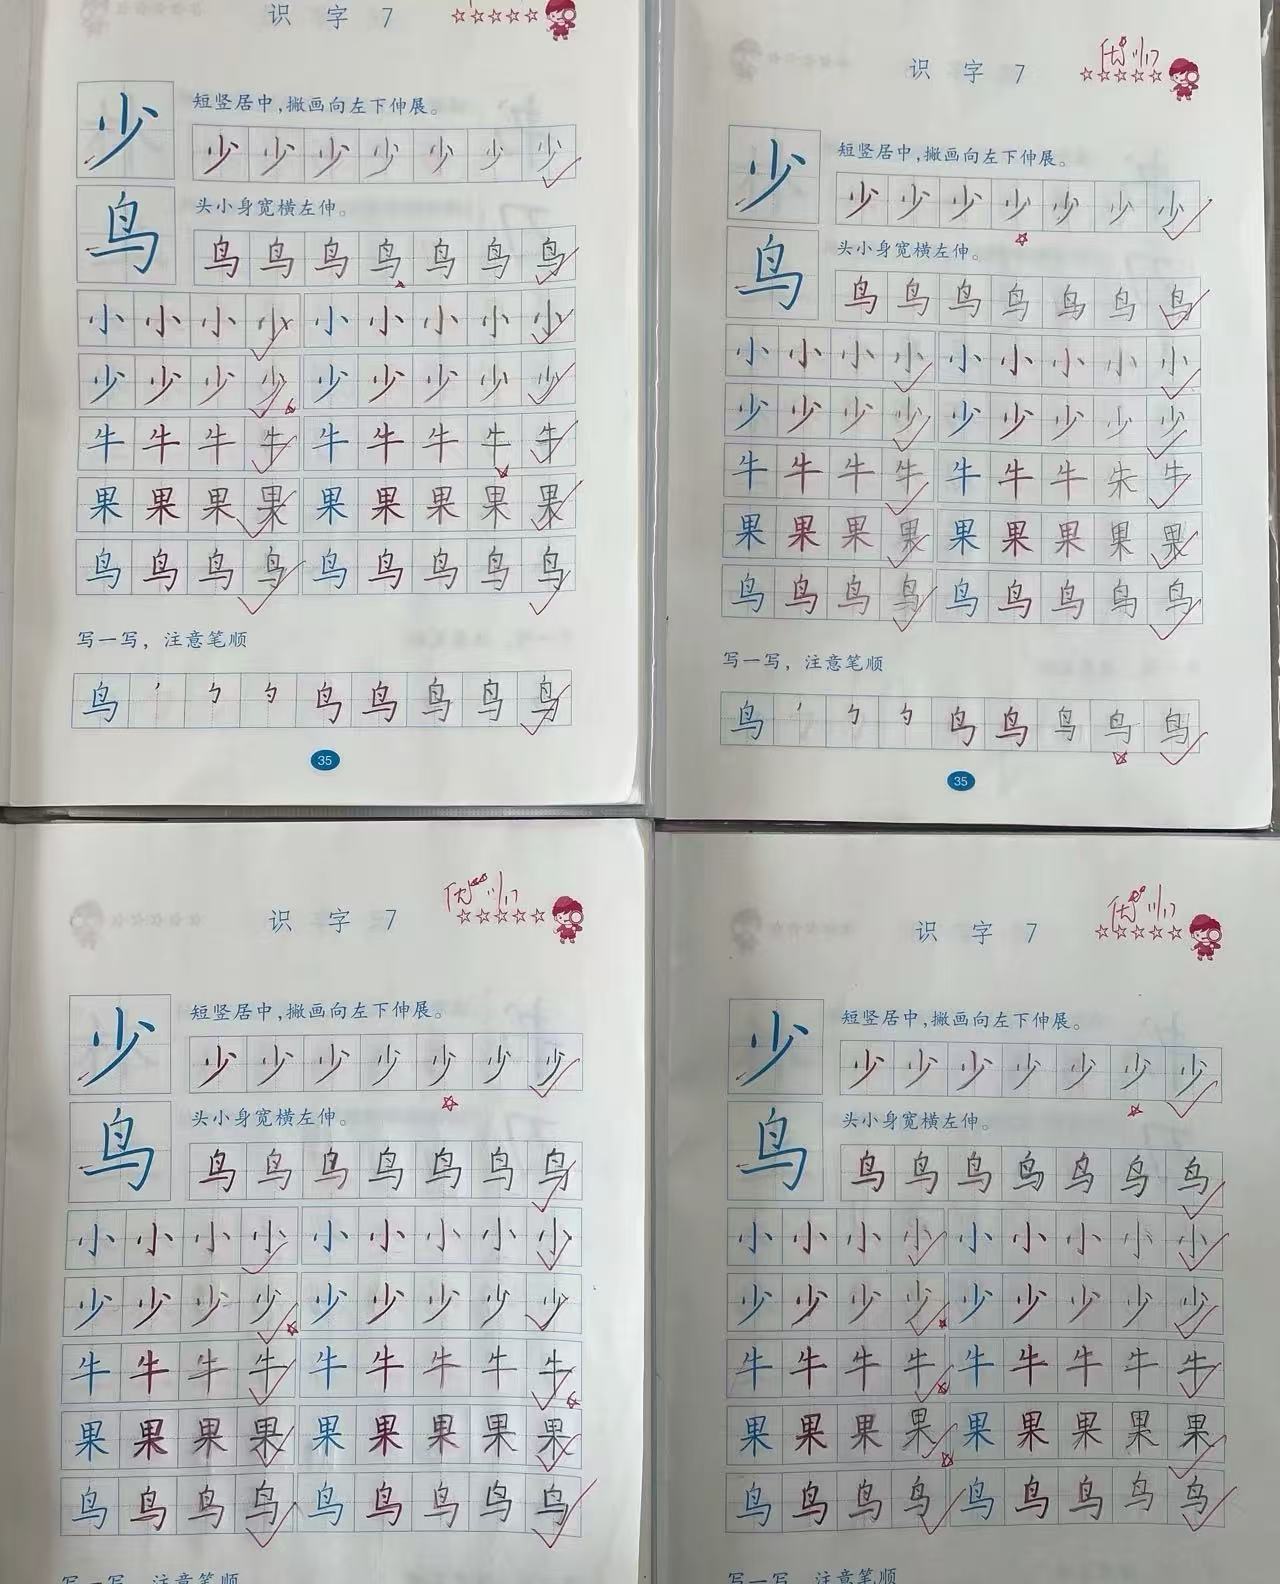 识字7
短竖居中，撇画向左下伸展。
少 少少少少少少少
头小身宽横左伸。
鸟 鸟鸟鸟鸟鸟鸟鸟
小小小小 小小小小小
少少少少 少少少少少
牛牛牛牛 牛牛牛牛牛
果果果果 果果果果果
鸟鸟鸟鸟 鸟鸟鸟鸟鸟
写一写，注意笔顺
鸟 鸟鸟鸟鸟鸟
35
优 11.17
识字7
短竖居中，撇画向左下伸展。
少 少少少少少少少
头小身宽横左伸。
鸟 鸟鸟鸟鸟鸟鸟鸟
小小小小 小小小小小
少少少少 少少少少少
牛牛牛牛 牛牛牛朱牛
果果果果 果果果果果
鸟鸟鸟鸟 鸟鸟鸟鸟鸟
写一写，注意笔顺
鸟 鸟鸟鸟鸟鸟
35
优 11.17
识字7
短竖居中，撇画向左下伸展。
少 少少少少少少少
头小身宽横左伸。
鸟 鸟鸟鸟鸟鸟鸟鸟
小小小小 小小小小小
少少少少 少少少少少
牛牛牛牛 牛牛牛牛牛
果果果果 果果果果果
鸟鸟鸟鸟 鸟鸟鸟鸟鸟
写一写，注意笔顺
优 11.17
识字7
短竖居中，撇画向左下伸展。
少 少少少少少少少
头小身宽横左伸。
鸟 鸟鸟鸟鸟鸟鸟鸟
小小小小 小小小小小
少少少少 少少少少少
牛牛牛牛 牛牛牛牛牛
果果果果 果果果果果
鸟鸟鸟鸟 鸟鸟鸟鸟鸟
写一写，注意笔顺